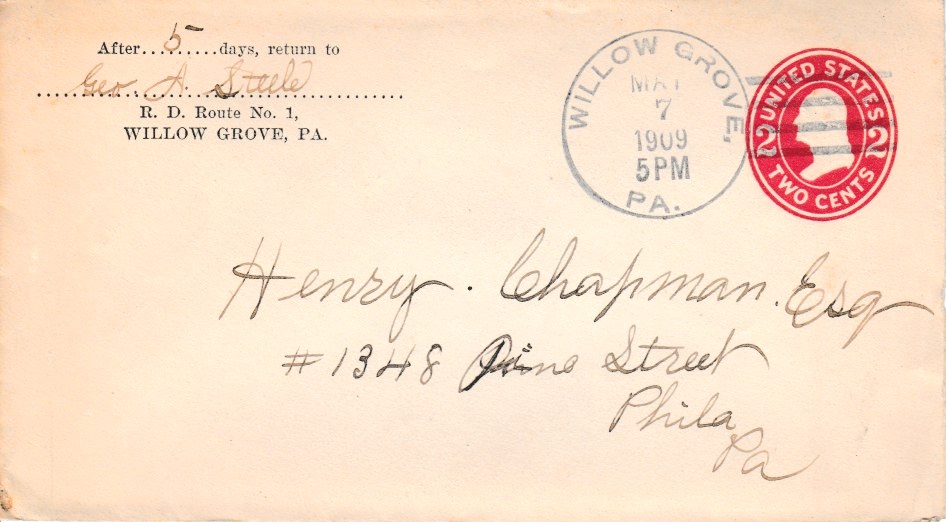 After.....5.....days, return to
Geo A. Steele
R. D. Route No. 1,
WILLOW GROVE, PA.
WILLOW GROVE,
MAY
7
1909
5PM
PA.
UNITED STATES
2 2
TWO CENTS
Henry. Chapman. Esq
#1348 Pine Street
Phila
Pa